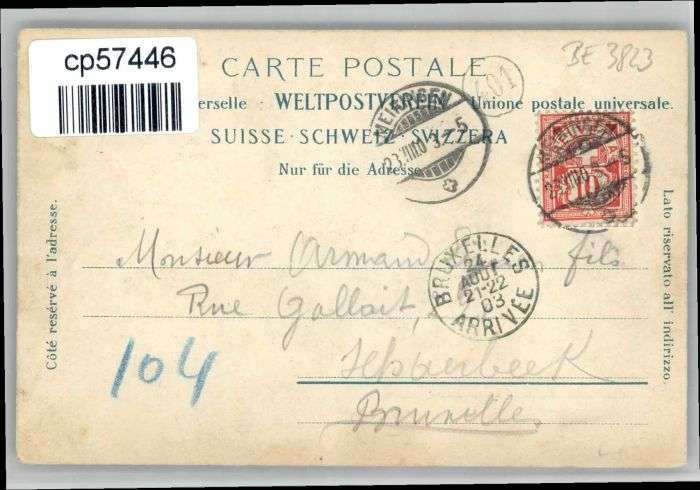 cp57446
BE 3823
CARTE POSTALE
erselle · WELTPOSTVEREIN · Unione postale universale.
SUISSE · SCHWEIZ · SVIZZERA
Nur für die Adresse
MEIRINGEN
23.VIII.03.-5
10
BRUXELLES
24
AOUT
21-22
03
ARRIVÉE
Côté resérvé à l'adresse.
Lato riservato all' indirizzo
Monsieur Armand fils
Rue Gallait,
104
Schaerbeek
Bruxelles